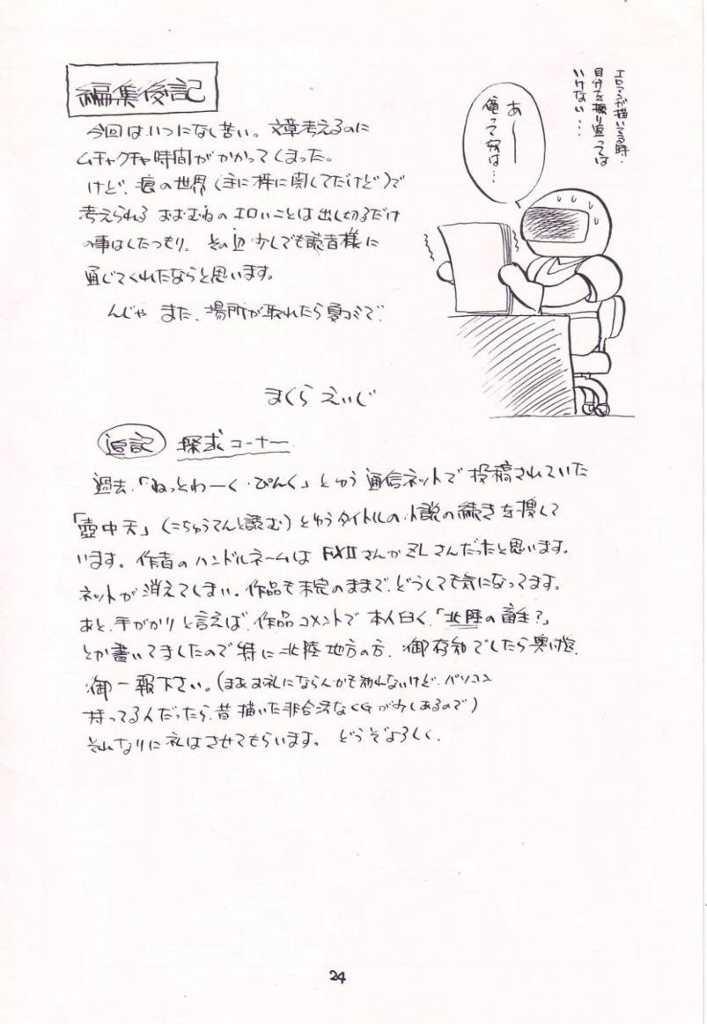 編集後記
今回はいつになし苦い。文章考えるのに
ムチャクチャ時間がかかってしまった。
けど、痕の世界(主に梓に関してだけど)で
考えられるおおむねのエロいことは出し切るだけ
の事はしたつもり。その辺少しでも読者様に
通じてくれたならと思います。
んじゃ また、場所が取れたら夏コミで
まくら えいじ
エロマンガ描いてる時、
自分を振り返っては
いけない…
あ〜
俺って奴は…
追記 探求コーナー
過去、「ねっとわーく・ぴんく」とゆう通信ネットで投稿されていた
「壺中天」(こちゅうてんと読む)とゆうタイトルの小説の続きを捜して
います。作者のハンドルネームは FXIIさんかZLさんだったと思います。
ネットが消えてしまい、作品も未完のままで、どうしても気になってます。
あと、手がかりと言えば、作品コメントで本人曰く、「北陸の畜生?」
とか書いてましたので特に北陸地方の方、御存知でしたら
御一報下さい。(まあお礼にならんかも知れないけど、パソコン
持ってるんだったら、昔描いた非合法なCGが少しあるので)
それなりに礼はさせてもらいます。どうぞよろしく。
24